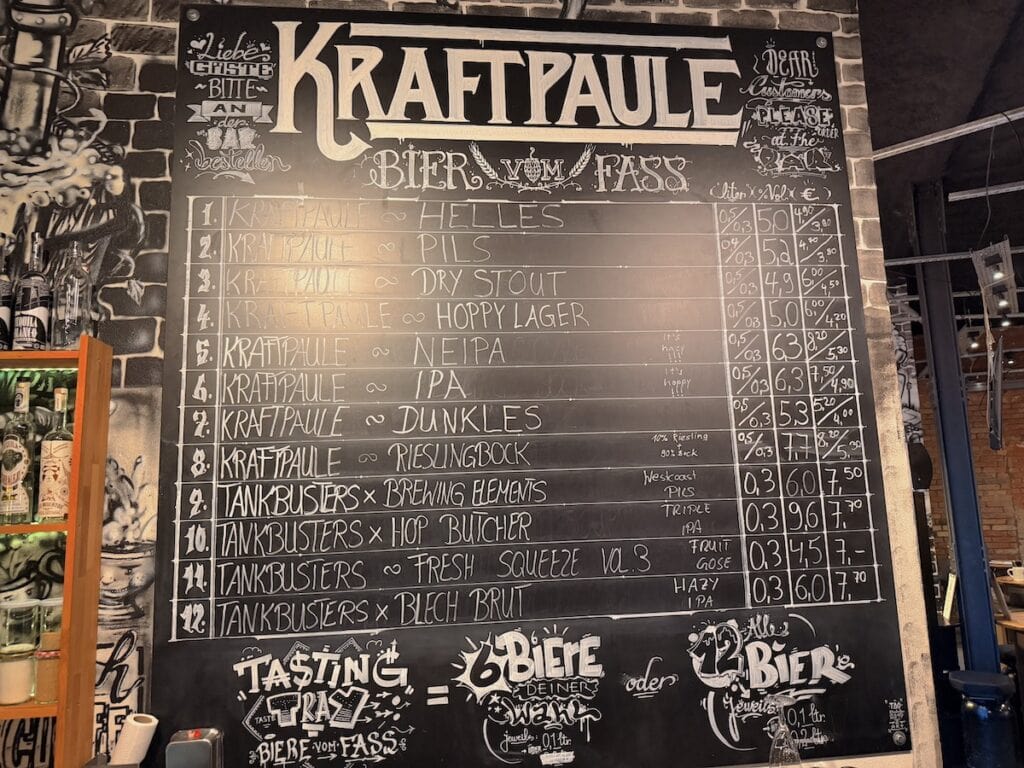 Liebe
GÄSTE
BITTE
AN
der
BAR
bestellen
KRAFTPAULE
DEAR
Customers
PLEASE
ORDER
at the
BIER VOM FASS
(liter x %Vol. x €)
1. KRAFTPAULE ~ HELLES 0,5/0,3 5,0 4,90/3,90
2. KRAFTPAULE ~ PILS 0,4/0,3 5,2 4,90/3,90
3. KRAFTPAULE ~ DRY STOUT 0,5/0,3 4,9 6,00/4,50
4. KRAFTPAULE ~ HOPPY LAGER 0,5/0,3 5,0 6,00/4,20
5. KRAFTPAULE ~ NEIPA It's hazy !!! 0,5/0,3 6,3 8,20/5,30
6. KRAFTPAULE ~ IPA It's hoppy !!! 0,5/0,3 6,3 7,50/4,90
7. KRAFTPAULE ~ DUNKLES 0,5/0,3 5,3 5,20/4,00
8. KRAFTPAULE ~ RIESLINGBOCK 10% Riesling 90% Bock 0,5/0,3 7,7 8,20/
9. TANKBUSTERS x BREWING ELEMENTS Westcoast PILS 0,3 6,0 7,50
10. TANKBUSTERS x HOP BUTCHER TRIPLE IPA 0,3 9,6 7,70
11. TANKBUSTERS ~ FRESH SQUEEZE VOL.3 FRUIT GOSE 0,3 4,5 7,-
12. TANKBUSTERS x BLECH BRUT HAZY IPA 0,3 6,0 7,70
TASTING
TASTE TRAY
BIERE VOM FASS
=
6 BIERE
DEINER
WAHL
jeweils 0,1 ltr.
oder
Alle
12 BIERE
jeweils
0,1 ltr.
0,2 ltr.